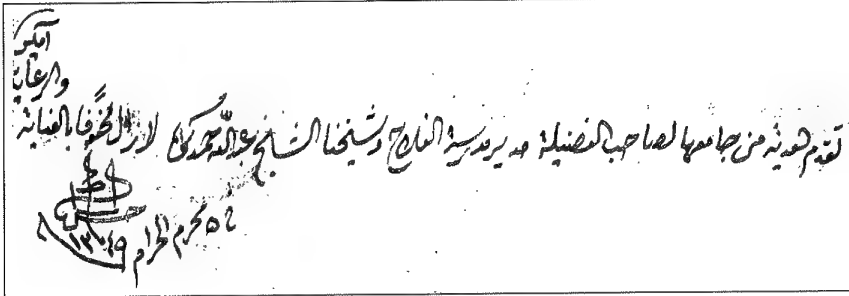 تقدم هدية من جامعها لصاحب الفضيلة مدير مدرسة الفلاح وشيخنا الشيخ عبد الله حمدوه لا زال محفوفا بالعناية
والرعاية
آمين
في ٥ محرم الحرام ١٣٤٩